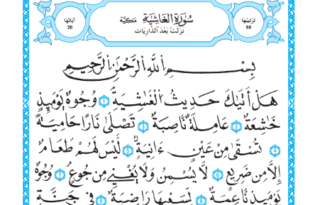 ترتيبها ٨٨
سُورَةُ الغَاشِيَةِ مَكِيَّة
نزلت بعد الذاريات
آياتها 26
بِسْمِ اللَّهِ الرَّحْمَٰنِ الرَّحِيمِ
هَلْ أَتَىٰكَ حَدِيثُ الْغَٰشِيَةِ وُجُوهٌ يَوْمَئِذٍ
خَٰشِعَةٌ عَامِلَةٌ نَّاصِبَةٌ تَصْلَىٰ نَارًا حَامِيَةً
تُسْقَىٰ مِنْ عَيْنٍ ءَانِيَةٍ لَّيْسَ لَهُمْ طَعَامٌ
إِلَّا مِن ضَرِيعٍ لَّا يُسْمِنُ وَلَا يُغْنِي مِن جُوعٍ وُجُوهٌ
يَوْمَئِذٍ نَّاعِمَةٌ لِّسَعْيِهَا رَاضِيَةٌ فِي جَنَّةٍ